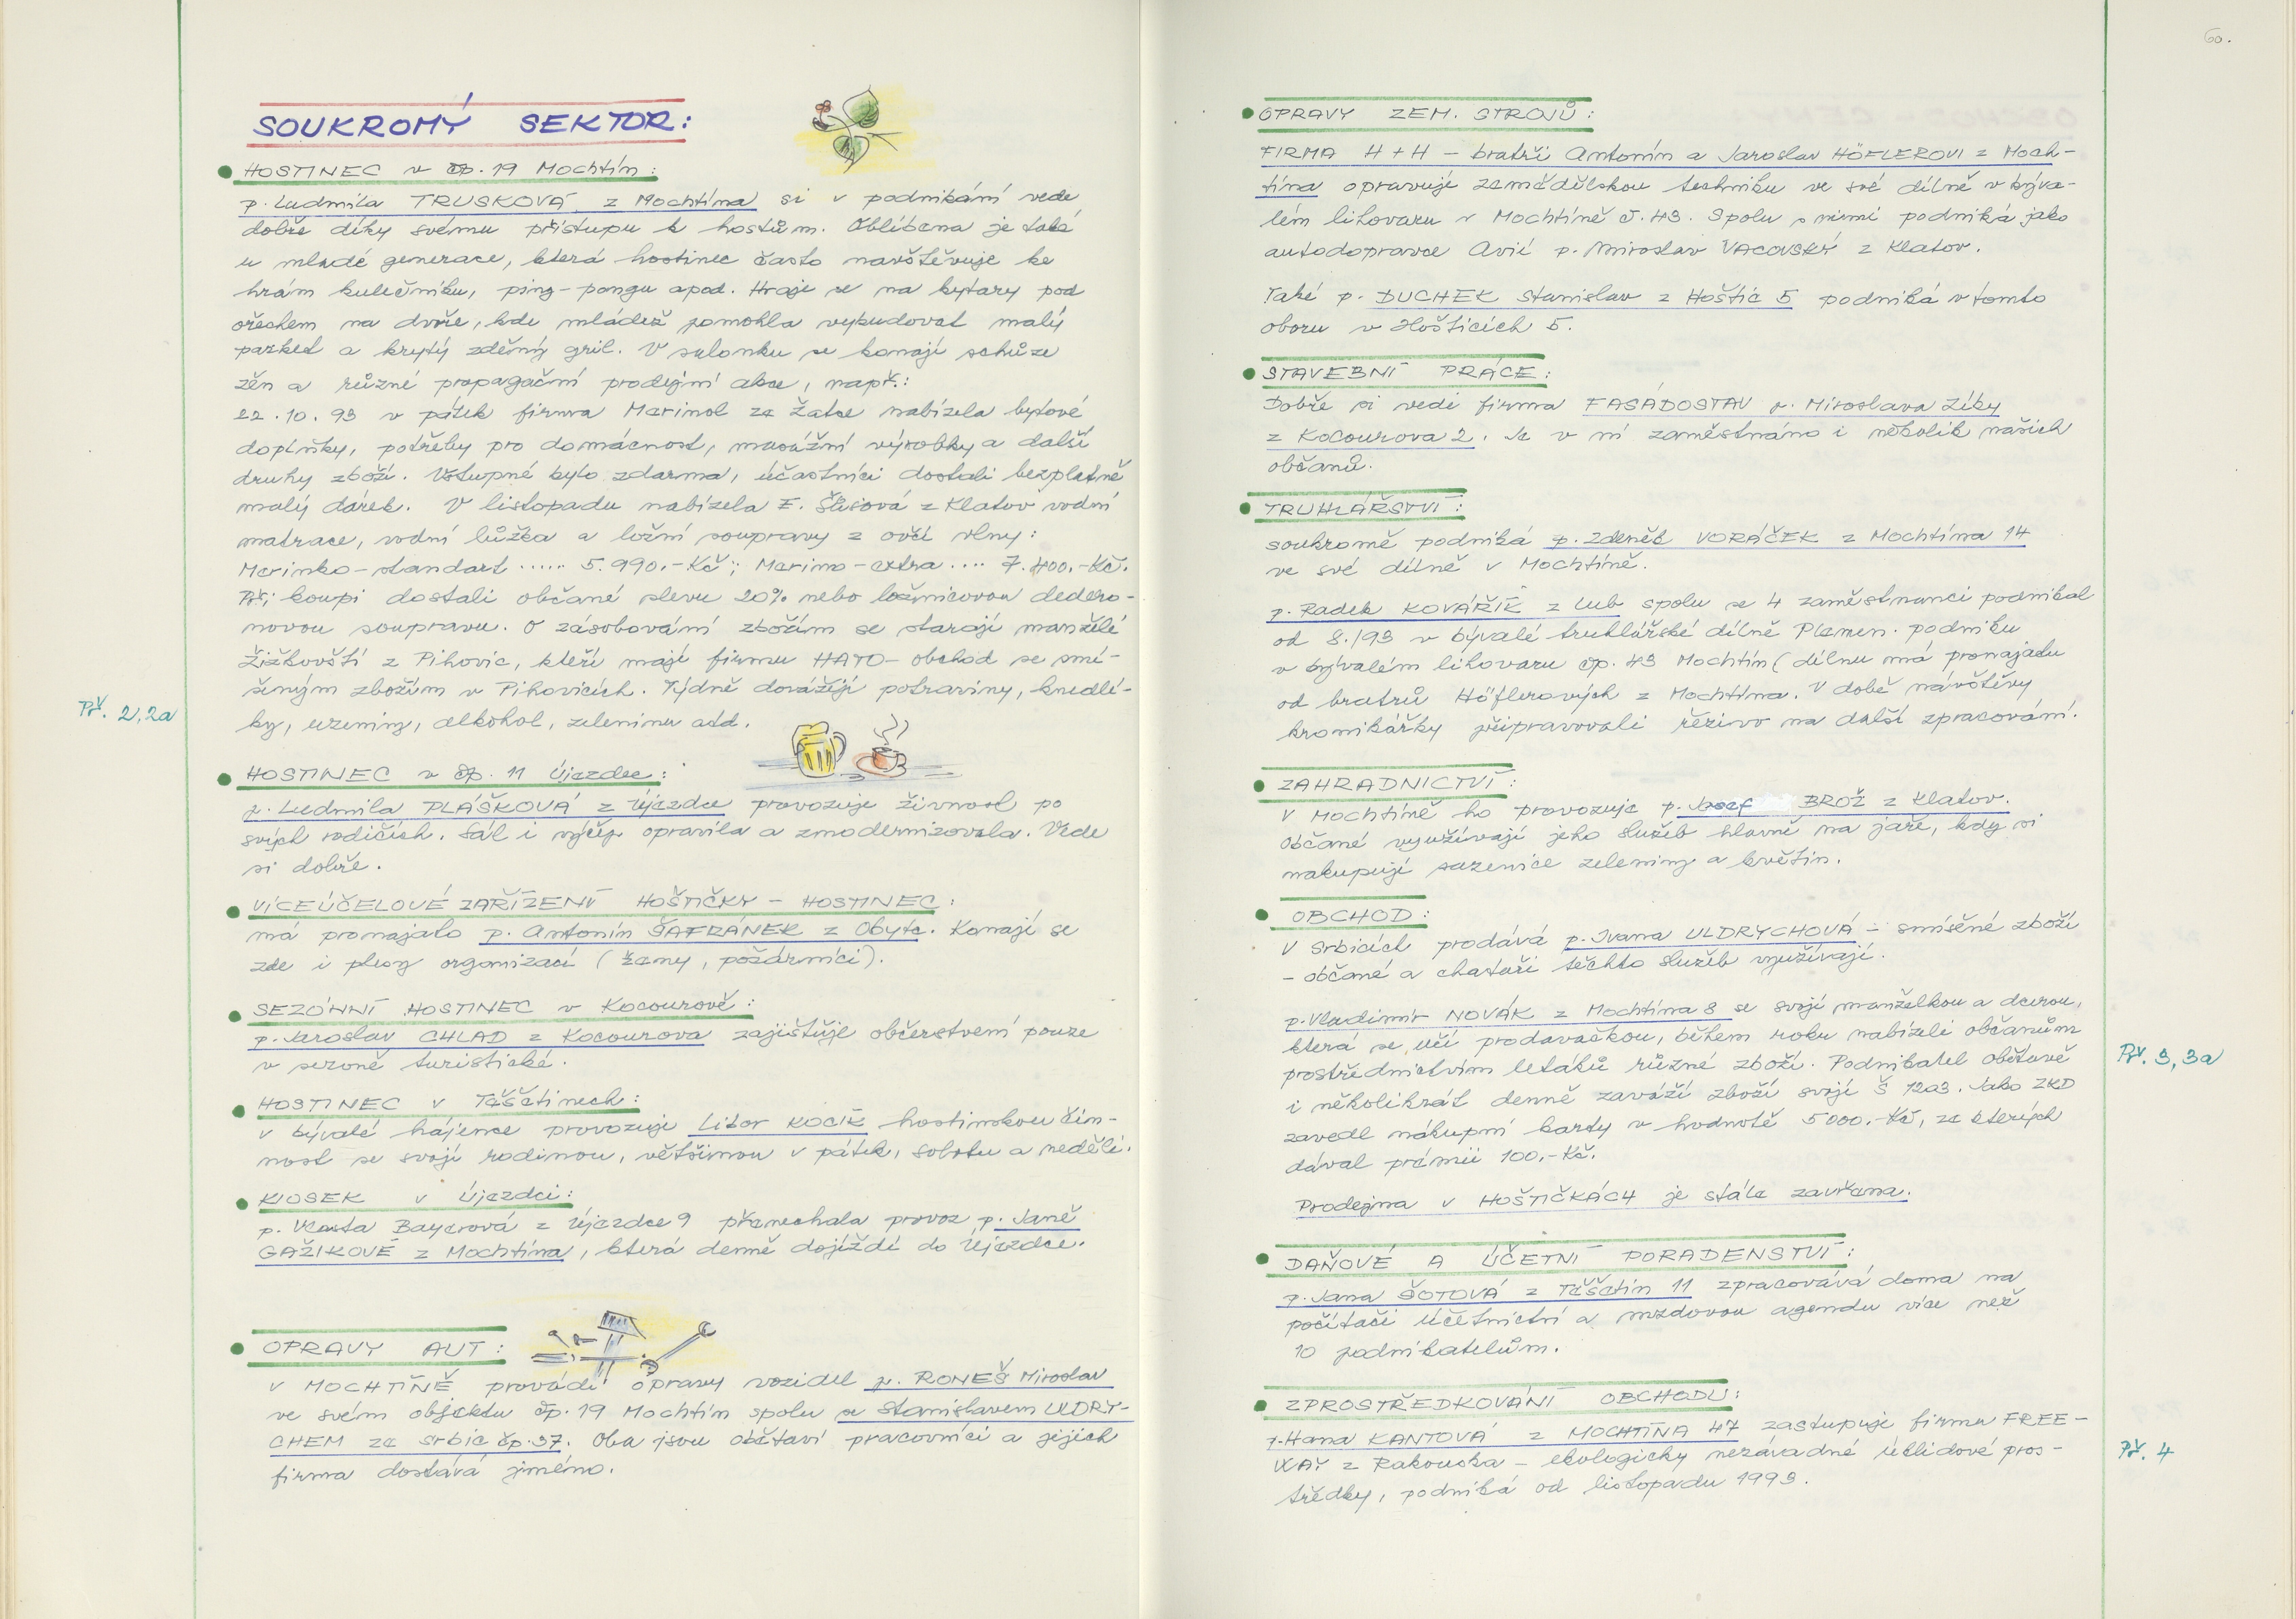 SOUKROMÝ SEKTOR:
HOSTINEC v čp. 19 Mochtín:
p. Ludmila TRUSKOVÁ z Mochtína si v podnikání vede
dobře díky svému přístupu k hostům. Oblíbena je také
u mladé generace, která hostinec často navštěvuje ke
hrám kulečníku, ping-pongu apod. Hraje se na kytary pod
ořechem na dvoře, kde mládež pomohla vybudovat malý
parket a krytý zděný gril. V salonku se konají schůze
žen a různé propagační prodejní akce, např.:
22.10.93 v pátek firma Marimol ze Žatce nabízela bytové
doplňky, potřeby pro domácnost, masážní výrobky a další
druhy zboží. Vstupné bylo zdarma, účastníci dostali bezplatně
malý dárek. V listopadu nabízela E. z Klatov vodní
matrace, vodní lůžka a ložní soupravy z ovčí vlny:
Merinko-standart ...... 5.990.-Kč; Merino-extra .... 7.400.-Kč.
Při koupi dostali občané slevu 20% nebo ložnicovou dedero-
novou soupravu. O zásobování zbožím se starají manželé
Žižkovští z Pihovic, kteří mají firmu HATO-obchod se smí-
šeným zbožím v Pihovicích. Týdně dovážejí potraviny, knedlí-
Př. 2,2a
ky, uzeniny, alkohol, zeleninu atd.
HOSTINEC v čp. 11 Újezdec:
p. Ludmila PLÁŠKOVÁ z Újezdce provozuje živnost po
svých rodičích. Sál i výčep opravila a zmodernizovala. Vede
si dobře.
VÍCEÚČELOVÉ ZAŘÍZENÍ HOŠTIČKY - HOSTINEC:
má pronajato p. Antonín ŠAFRÁNEK z Obytc. Konají se
zde i plesy organizací (ženy, požárníci).
SEZÓNNÍ HOSTINEC v Kocourově:
p. Jaroslav CHLAD z Kocourova zajišťuje občerstvení pouze
v sezoně turistické.
HOSTINEC v Těšětinech:
v bývalé hájence provozuje Libor KOCÍK hostinskou čin-
nost se svojí rodinou, většinou v pátek, sobotu a neděli.
KIOSEK v Újezdci:
p. Vlasta Bayerová z Újezdce 9 přenechala provoz p. Janě
GAŽIKOVÉ z Mochtína, která denně dojíždí do Újezdce.
OPRAVY AUT:
V MOCHTÍNĚ provádí opravy vozidel p. RONEŠ Miroslav
ve svém objektu čp. 19 Mochtín spolu se Stanislavem ULDRY-
CHEM ze Srbic čp. 37. Oba jsou obětaví pracovníci a jejich
firma dostává jméno.
60.
OPRAVY ZEM. STROJŮ:
FIRMA H+H - bratři Antonín a Jaroslav HÖFLEROVI z Moch-
tína opravuje zemědělskou techniku ve své dílně v býva-
lém lihovaru v Mochtíně č. 43. Spolu s nimi podniká jako
autodopravce Avií p. Miroslav VACOVSKÝ z Klatov.
Také p. DUCHEK Stanislav z Hoštic 5 podniká v tomto
oboru v Hošticích 5.
STAVEBNÍ PRÁCE:
Dobře si vede firma FASÁDOSTAV p. Miroslava Zíky
z Kocourova 2. Je v ní zaměstnáno i několik našich
občanů.
TRUHLÁŘSTVÍ:
soukromě podniká p. Zdeněk VORÁČEK z Mochtína 14
ve své dílně v Mochtíně.
p. Radek KOVÁŘÍK z Lub spolu se 4 zaměstnanci podnikal
od 8./93 v bývalé truhlářské dílně Plemen. podniku
v bývalém lihovaru čp. 43 Mochtín (dílnu má pronajatu
od bratrů Höflerových z Mochtína. V době návštěvy
kronikářky připravovali řezivo na další zpracování.
ZAHRADNICTVÍ:
V Mochtíně ho provozuje p. Josef BROŽ z Klatov.
Občané využívají jeho služeb hlavně na jaře, kdy si
nakupují sazenice zeleniny a květin.
OBCHOD:
V Srbicích prodává p. Ivana ULDRYCHOVÁ - smíšené zboží
- občané a chataři těchto služeb využívají.
p. Vladimír NOVÁK z Mochtína 8 se svojí manželkou a dcerou,
která se učí prodavačkou, během roku nabízeli občanům
prostřednictvím letáků různé zboží. Podnikatel obětavě
Př. 3,3a
i několikrát denně zaváží zboží svojí Š 1203. Jako ZKD
zavedl nákupní karty v hodnotě 5000.-Kč, ze kterých
dával prémii 100.-Kč.
Prodejna v HOŠTIČKÁCH je stále zavřena.
DAŇOVÉ A ÚČETNÍ PORADENSTVÍ:
p. Jana ŠOTOVÁ z Těšětin 11 zpracovává doma na
počítači účetnictví a mzdovou agendu více než
10 podnikatelům.
ZPROSTŘEDKOVÁNÍ OBCHODU:
p. Hana KANTOVÁ z MOCHTÍNA 47 zastupuje firmu FREE-
WAY z Rakouska - ekologicky nezávadné úklidové pros-
Př. 4
tředky, podniká od listopadu 1993.